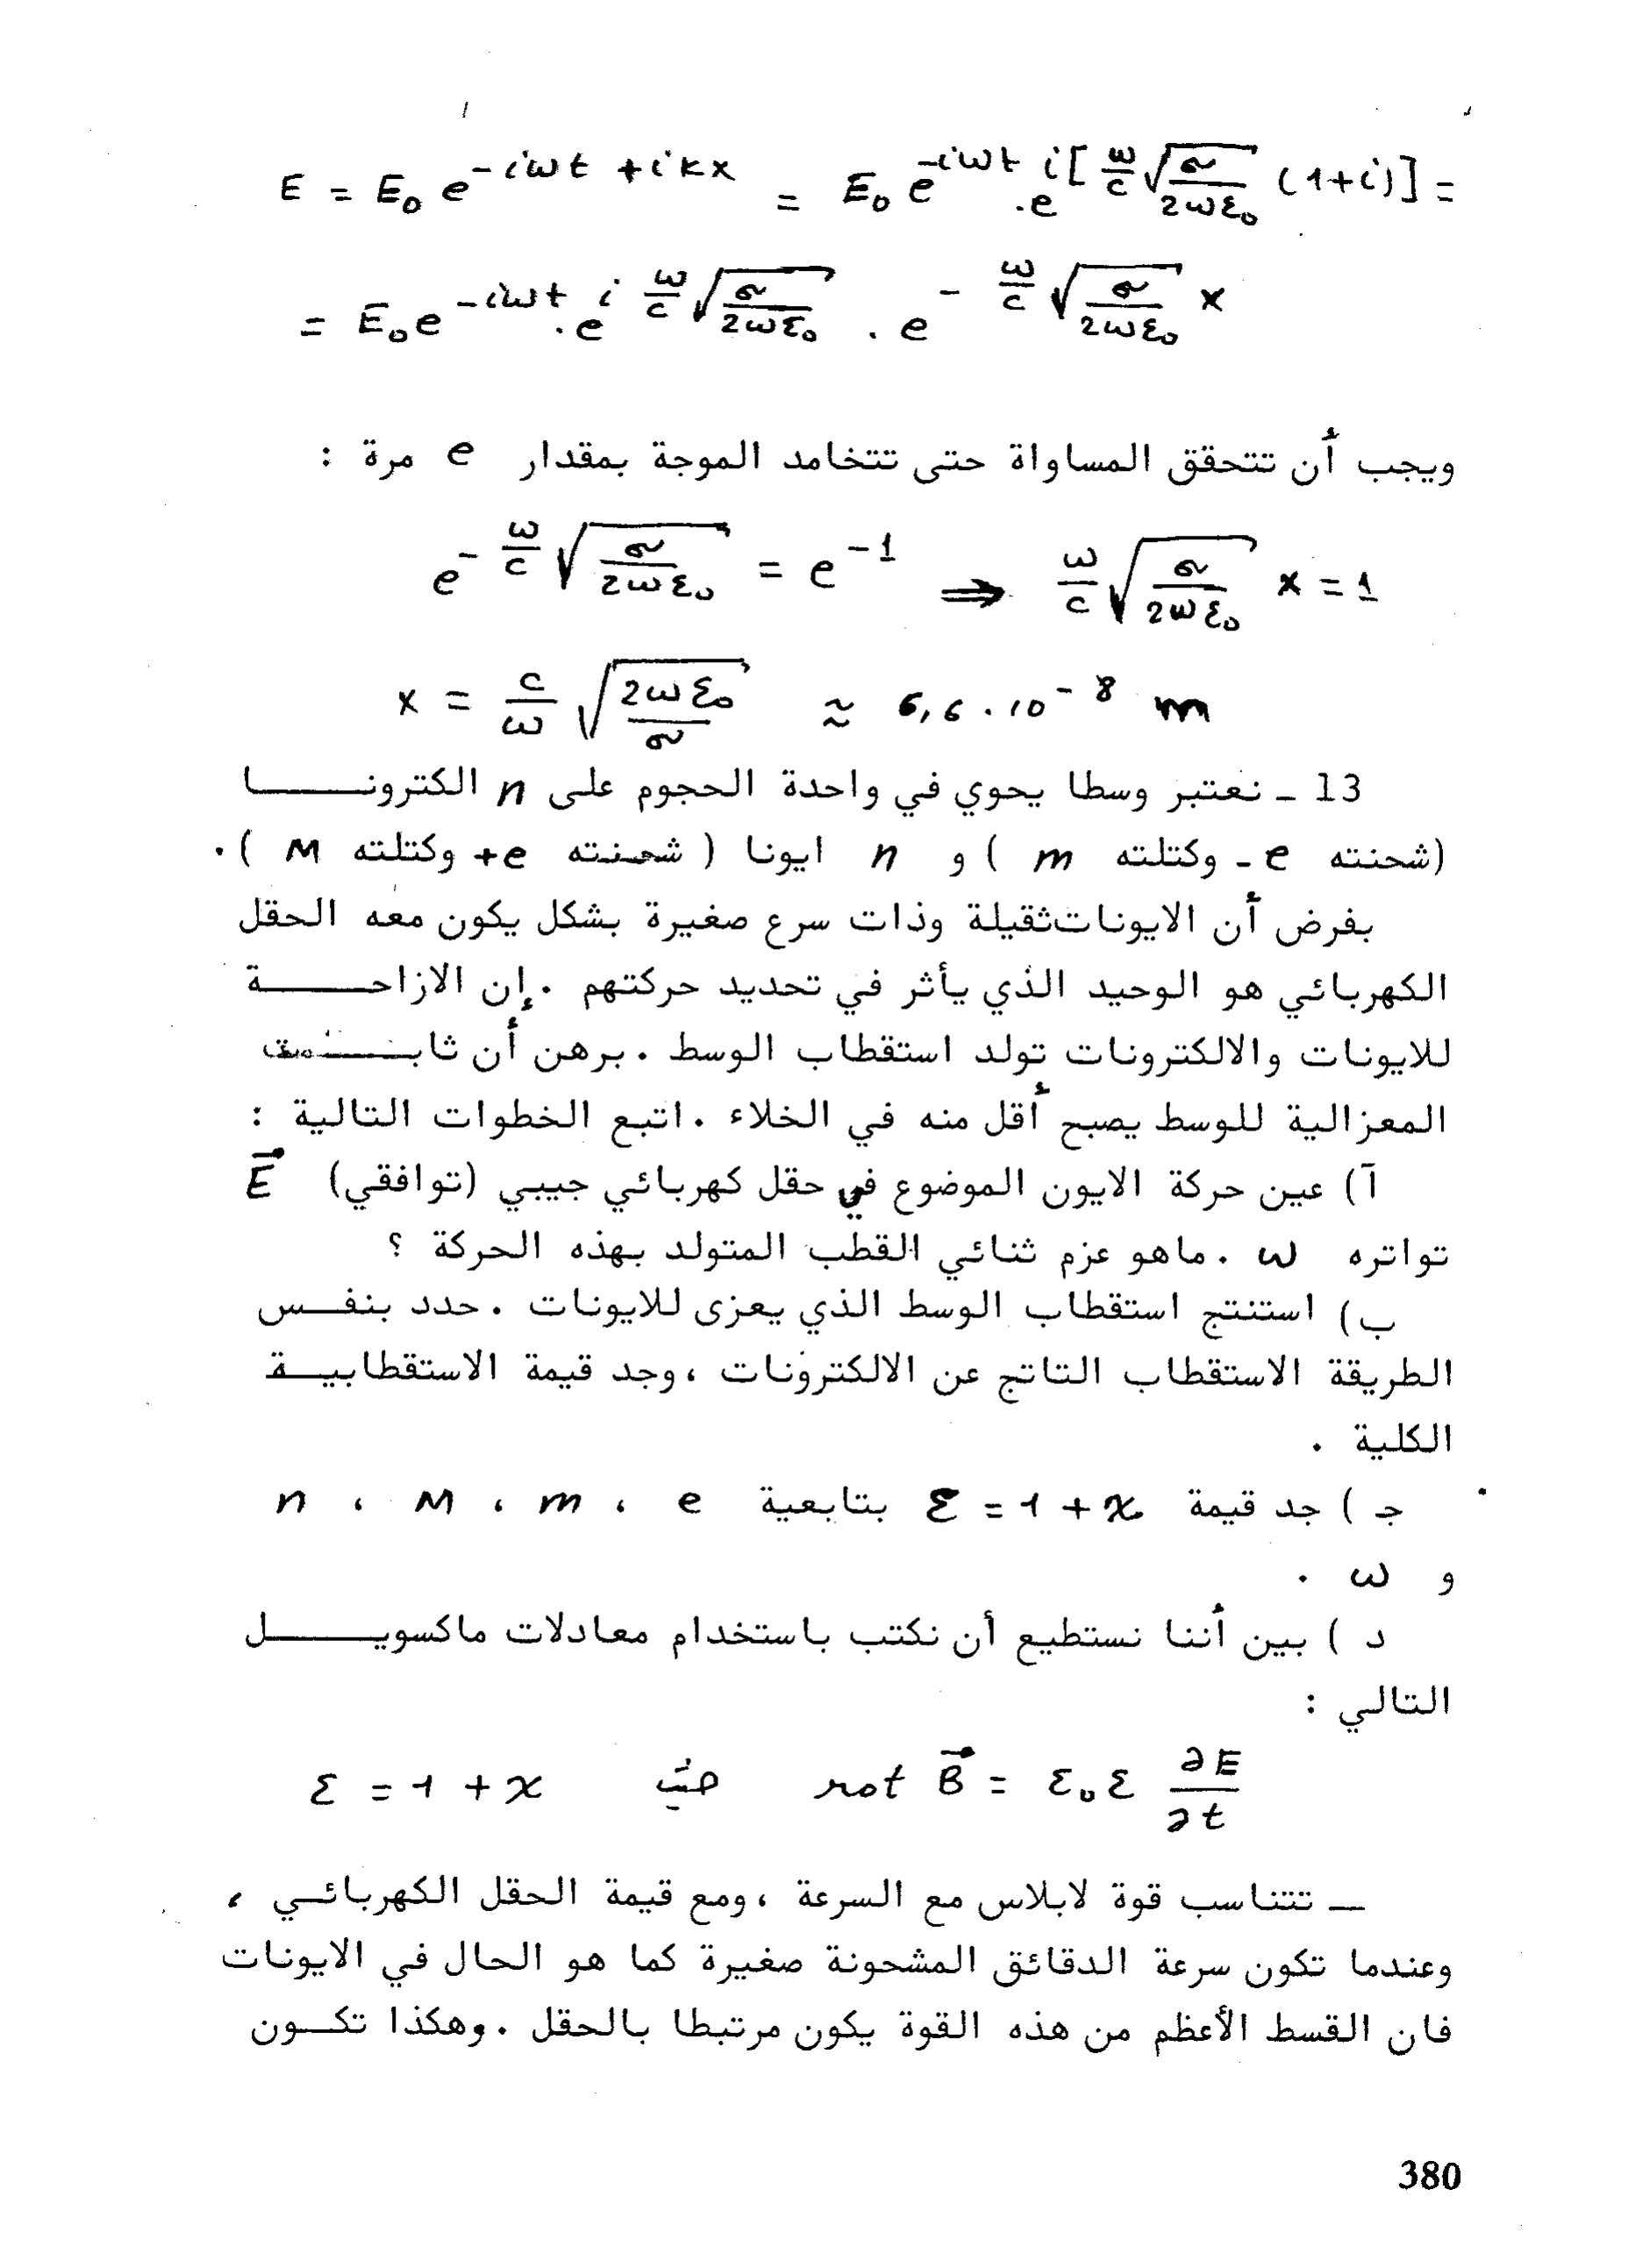 E = E₀ e^{-iωt + ikx} = E₀ e^{-iωt} . e^{i[ω/c √(σ/2ωε₀) (1+i)]} =
= E₀ e^{-iωt} . e^{i ω/c √(σ/2ωε₀)} . e^{- ω/c √(σ/2ωε₀) x}
ويجب أن تتحقق المساواة حتى تتخامد الموجة بمقدار e مرة :
e^{- ω/c √(σ/2ωε₀)} = e^{-1} ⇒ ω/c √(σ/2ωε₀) x = 1
x = c/ω √(2ωε₀/σ) ≈ 6,6 . 10^{-8} m
13 ـ نعتبر وسطا يحوي في واحدة الحجوم على n الكترونـــا
(شحنته e - وكتلته m ) و n ايونا ( شحنته e+ وكتلته M ) .
بفرض أن الايونات ثقيلة وذات سرع صغيرة بشكل يكون معه الحقل
الكهربائي هو الوحيد الذي يأثر في تحديد حركتهم . إن الازاحـــة
للايونات والالكترونات تولد استقطاب الوسط . برهن أن ثابـــت
المعزالية للوسط يصبح أقل منه في الخلاء . اتبع الخطوات التالية :
آ) عين حركة الايون الموضوع في حقل كهربائي جيبي (توافقي) E⃗
تواتره ω . ماهو عزم ثنائي القطب المتولد بهذه الحركة ؟
ب) استنتج استقطاب الوسط الذي يعزى للايونات . حدد بنفـس
الطريقة الاستقطاب التاتج عن الالكترونات ، وجد قيمة الاستقطابيـة
الكلية .
جـ ) جد قيمة ε = 1 + χ بتابعية e ، m ، M ، n
و ω .
د ) بين أننا نستطيع أن نكتب باستخدام معادلات ماكسويـــل
التالي :
rot B⃗ = ε₀ε ∂E/∂t حيث ε = 1 + χ
ـ تتناسب قوة لابلاس مع السرعة ، ومع قيمة الحقل الكهربائـي ،
وعندما تكون سرعة الدقائق المشحونة صغيرة كما هو الحال في الايونات
فان القسط الأعظم من هذه القوة يكون مرتبطا بالحقل . وهكذا تكـون
380